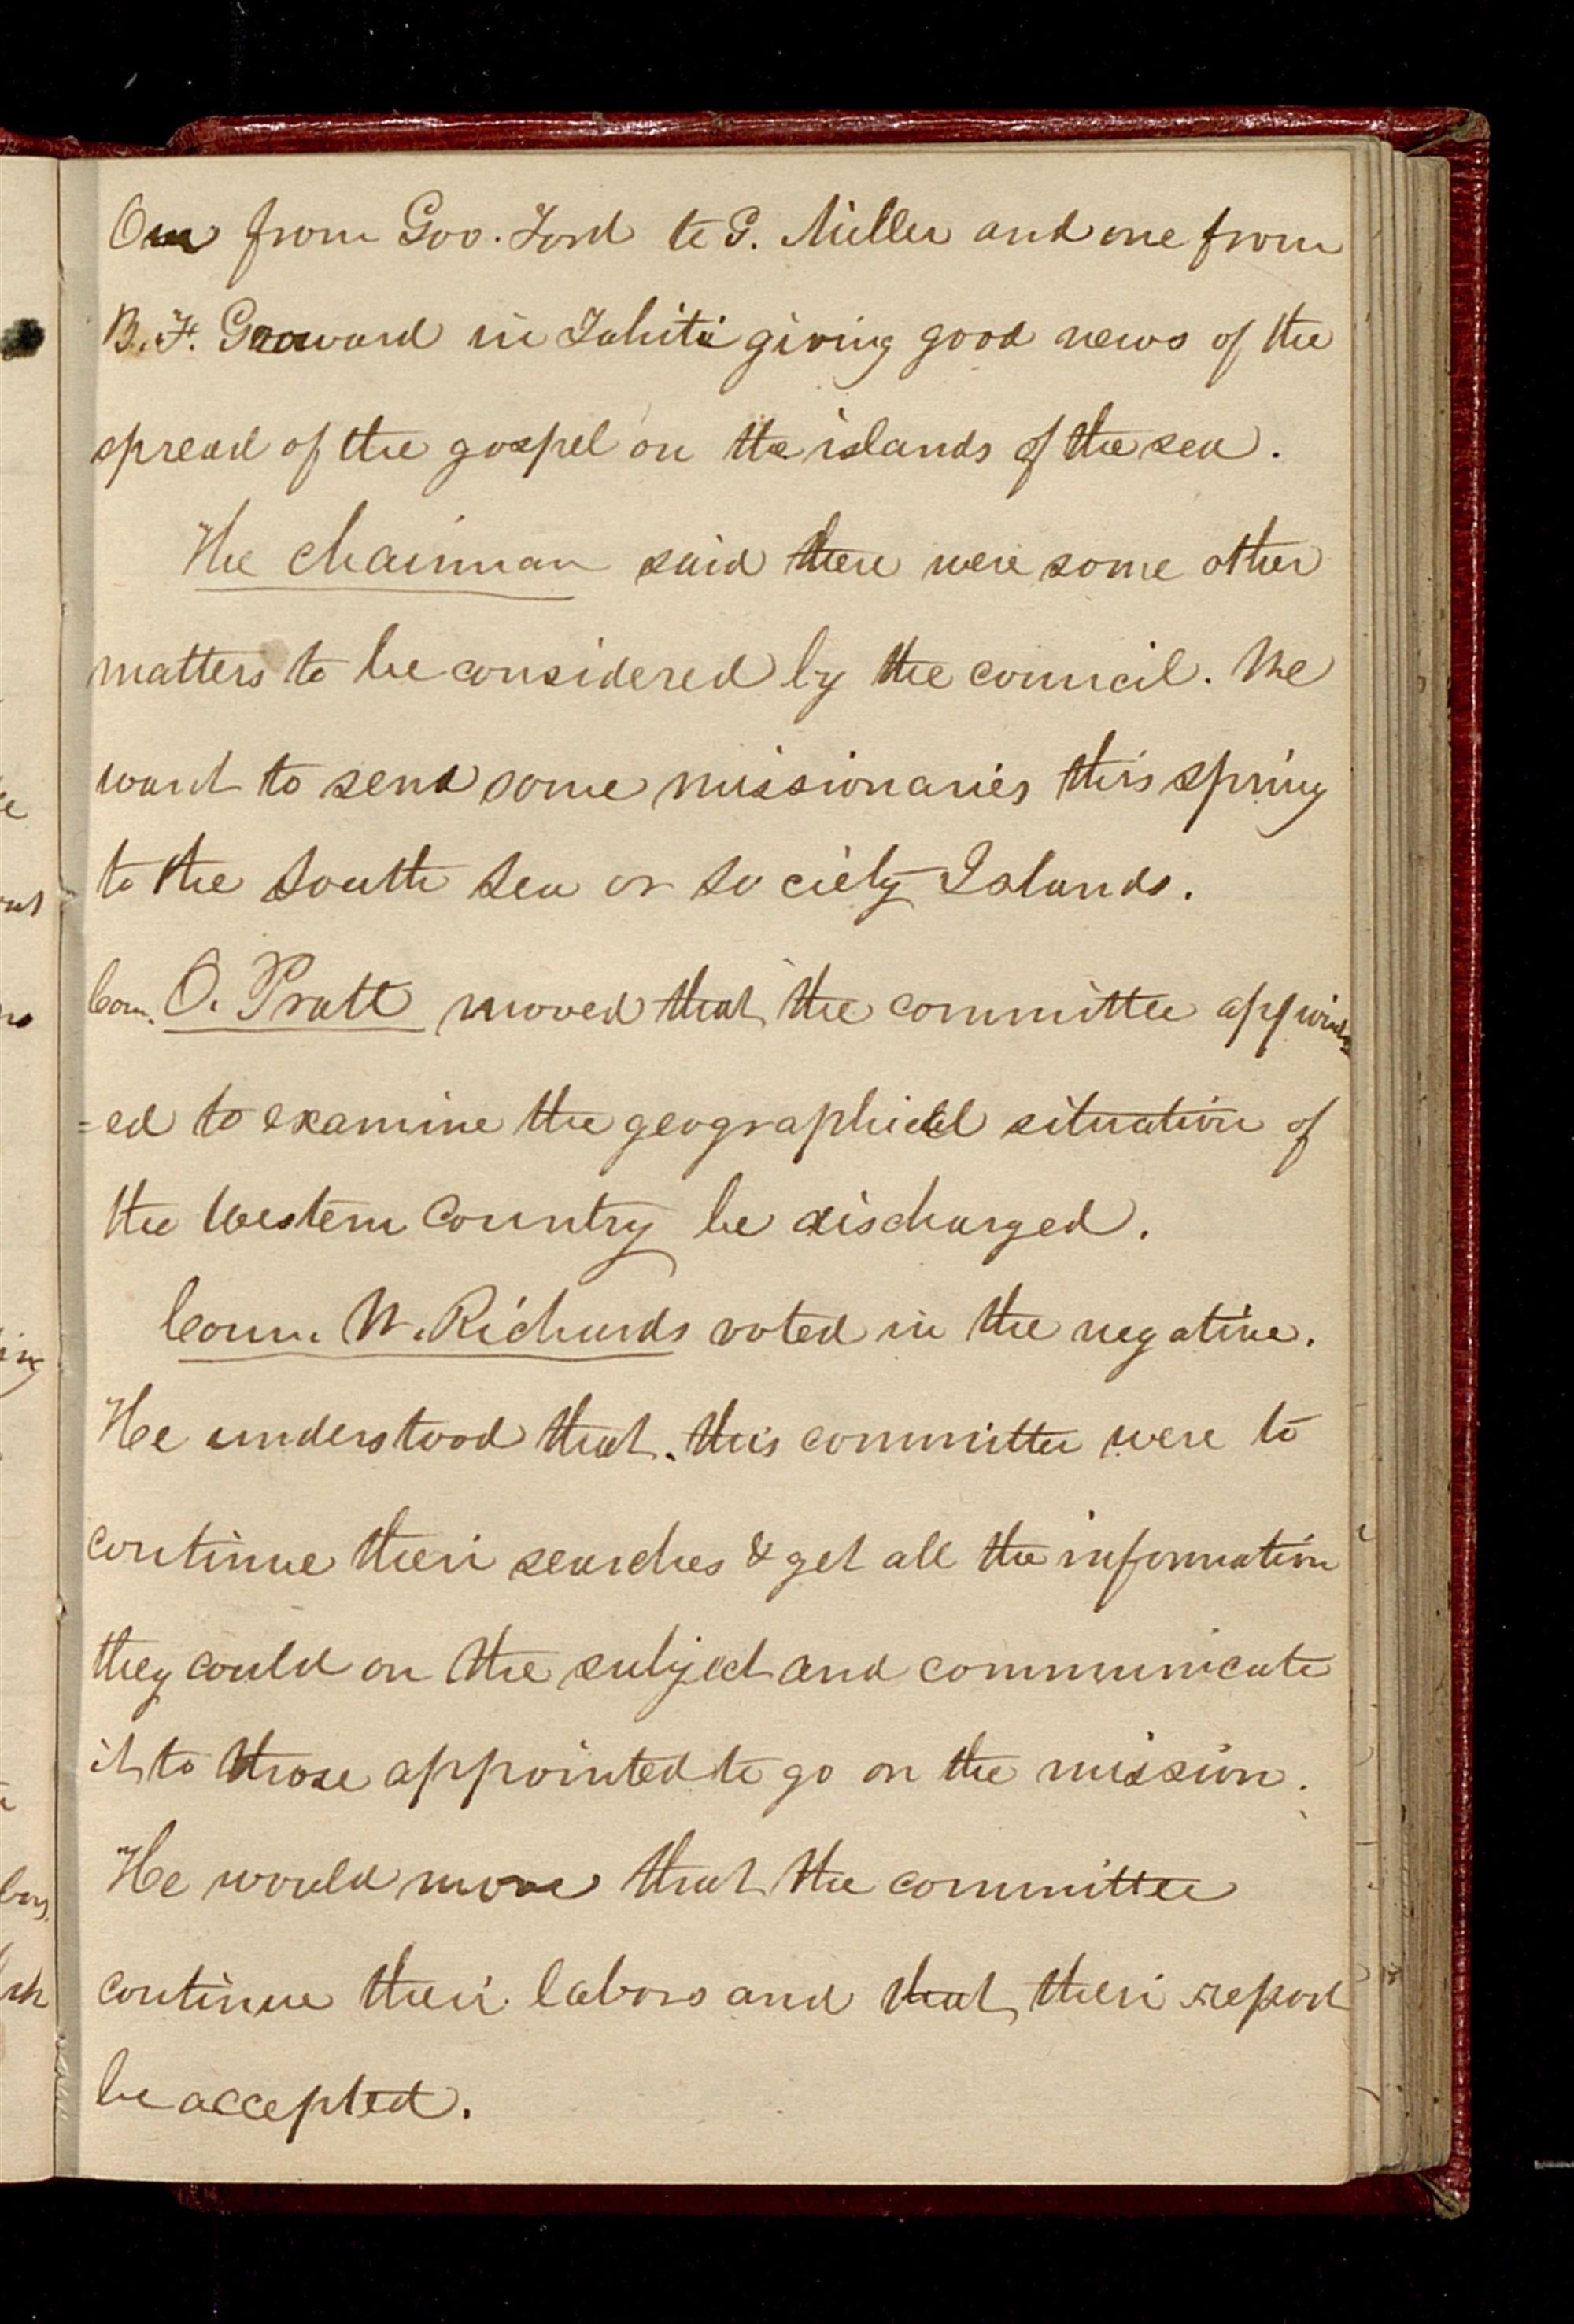 One from Gov. Ford to G. Miller and one from
B. F. Grouard in Tahiti giving good news of the
spread of the gospel on the islands of the sea.
The chairman said there were some other
matters to be considered by the council. We
want to send some missionaries this spring
to the South Sea or Society Islands.
Coun. O. Pratt moved that the committee appoint
=ed to examine the geographical situation of
the Western Country be discharged.
Coun. W. Richards voted in the negative.
He understood that this committee were to
continue their searches & get all the information
they could on the subject and communicate
it to those appointed to go on the mission.
He would move that the committee
continue their labors and that their report
be accepted.